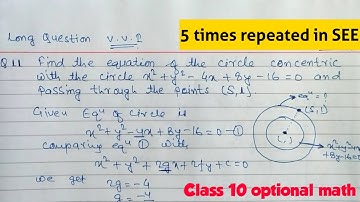 Long Question v.v.I
5 times repeated in SEE
Q11 Find the equation of the circle concentric
with the circle x²+y²-4x+8y-16=0 and
passing through the points (5,1).
Given Eqⁿ of circle is
x²+y²-4x+8y-16=0 -①
comparing eqⁿ ① with
x²+y²+2gx+2fy+c=0
we get
2g=-4
g=-4
eqⁿ=?
(5,1)
(,)
x²+y²-4x
+8y-16=0
Class 10 optional math